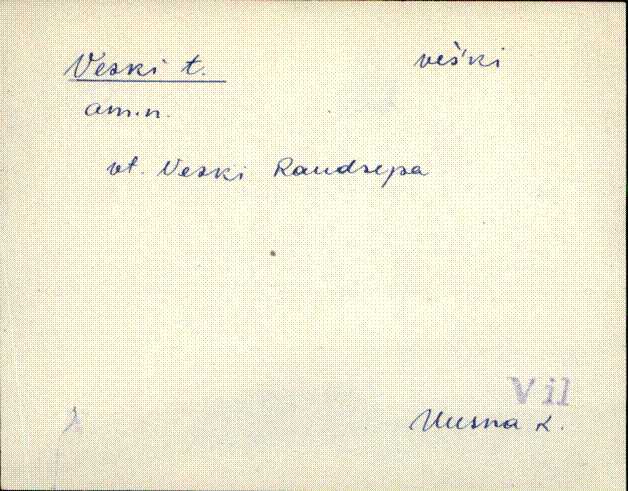 Veski t. veški
am.n.
vt. Veski Raudsepa
Vil
Uusna k.